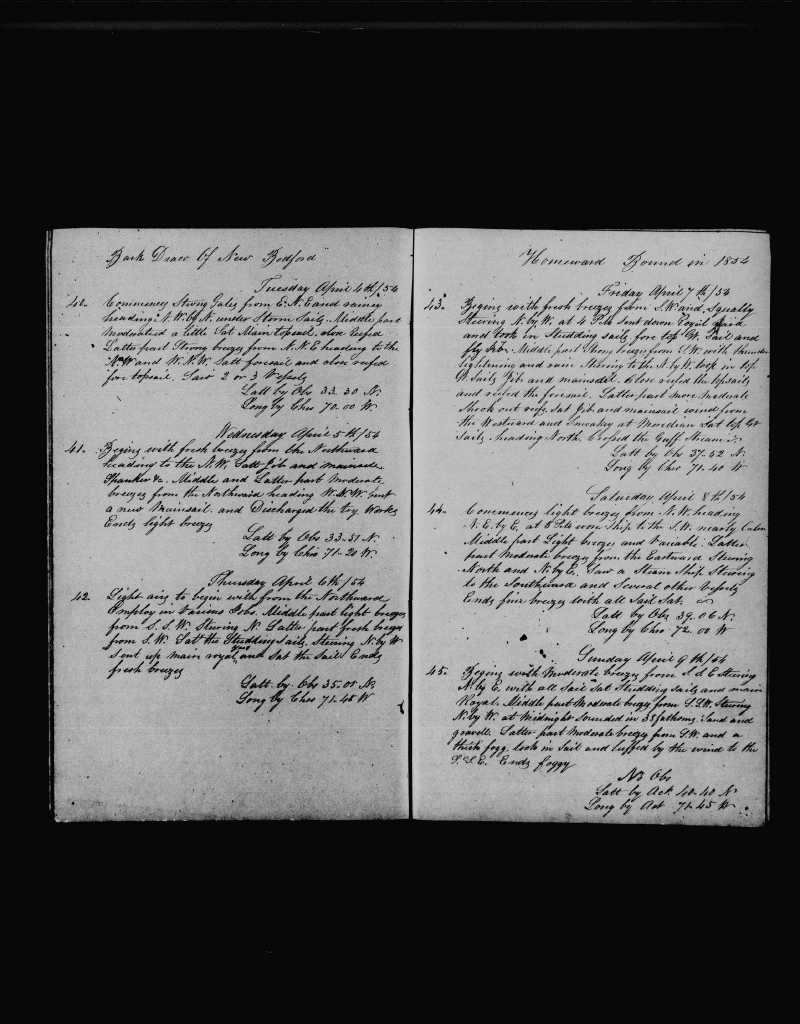 Bark Draco of New Bedford
Tuesday April 4th/54
40. Commences Strong Gales from E.N.E and rainey
heading N.W. by N. under Storm Sails. Middle part
Moderated a little Sat Main topsail, close Reefed
Latter part Strong breezes from N.N.E heading to the
N.W and W.N.W. Satt foresail and close reefed
fore topsail. Saw 2 or 3 Vessels
Latt by Obs 33.30 N.
Long by Chro 70.00 W
Wednesday April 5th/54
41. Begins with fresh breezes from the Northward
heading to the N.W. Satt Jib and mainsail
Spanker &c. Middle and Latter part Moderate
breezes from the Northward heading W.N.W. bent
a new Mainsail, and Discharged the try Works
Ends light breezes
Latt by Obs 33-51 N.
Long by Chro 71-20 W.
Thursday April 6th/54
42. Light airs to begin with from the Northward
Employ in Various Jobs. Middle part light breezes
from S.S.W. Steering N. Latter part fresh breezes
from S.W. Sat the Studding Sails. Steering N. by W
Sent up main royal Yard and Sat the Sail Ends
fresh breezes
Latt by Obs 35.05 N.
Long by Chro 71.45 W
Homeward Bound in 1854
Friday April 7th/54
43. Begins with fresh breezes from S.W. and Squally
Steering N. by W. at 4 P.M. Sent down Royal Yard
and took in Studding sails fore top Gt. Sail and
fly Jib. Middle part Strong breezes from S.W. with thunder
lightening and rain Steering to the N. by W. took in top
Gt Sails Jib and mainsail. Close reefed the topsails
and reefed the foresail. Latter part more moderate
Shook out reefs, Sat Jib and mainsail wind from
the Westward and Smoakey at Meridian Sat top Gt
Sails, heading North. Crossed the Gulf Stream
Latt by Obs 37.52 N.
Long by Chro 71.40 W
Saturday April 8th/54
44. Commences light breezes from N.W. heading
N.E. by E. at 8 P.M. wore Ship to the S.W. nearly Calm
Middle part Light breezes and Variable. Latter
part Moderate breezes from the Eastward Steering
North and N. by E. Saw a Steam Ship Steering
to the Southward and Several other Vessels
Ends fine breezes with all Sail Sat.
Latt by Obs 39.06 N.
Long by Chro 72.00 W
Sunday April 9th/54
45. Begins with Moderate breezes from S.E Steering
N. by E. with all Sail Sat Studding Sails and main
Royal. Middle part Moderate breezes from S.S.W. Steering
N. by W. at Midnight sounded in 38 fathoms. Sand and
gravell. Latter part Moderate breezes from S.W. and a
thick fogg. took in Sail and luffed by the wind to the
S.S.E. Ends foggy
No Obs
Latt by Act 40.40 N.
Long by Act 71.45 W